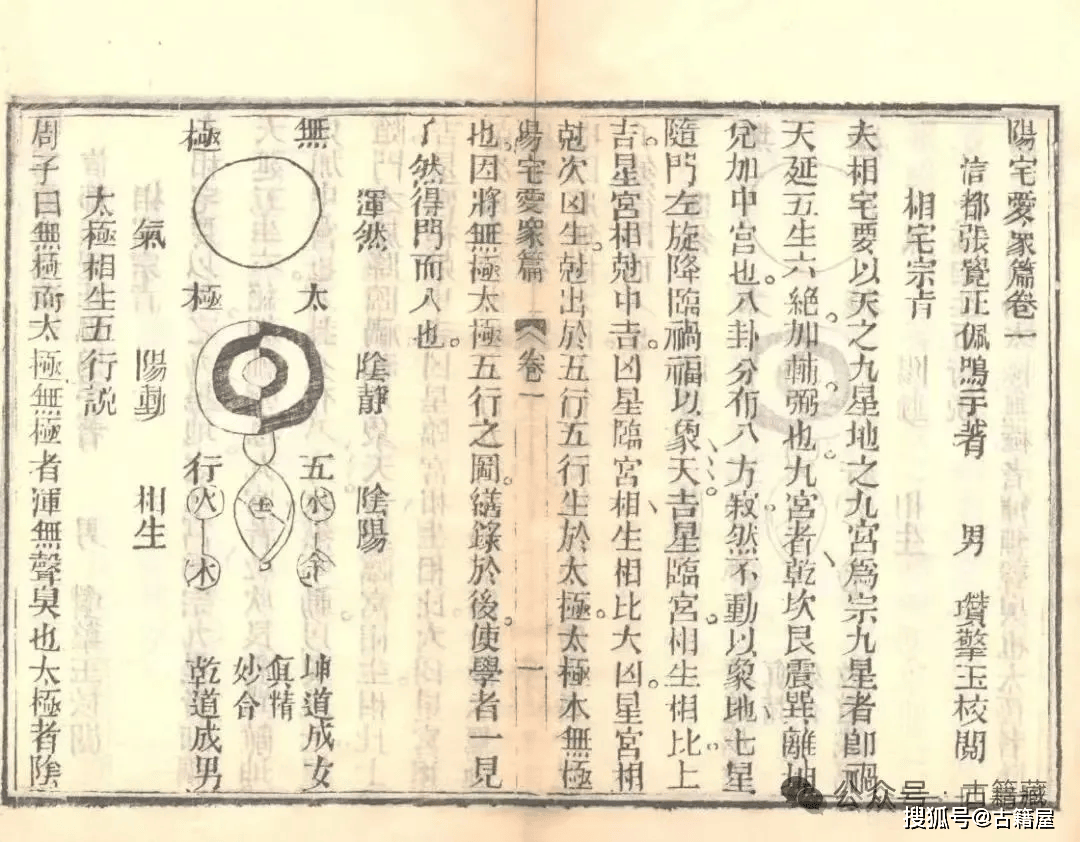 陽宅愛衆篇卷一
信都張覺正佩鳴于著　男　瓚擎玉校閱
相宅宗旨
夫相宅要以天之九星地之九宮爲宗九星者卽禍
天延五生六絶加輔弼也九宮者乾坎艮震巽離坤
兌加中宮也八卦分布八方寂然不動以象地七星
隨門左旋降臨禍福以象天吉星臨宮相生相比上
吉星宮相尅中吉凶星臨宮相生相比大凶星宮相
尅次凶生尅出於五行五行生於太極太極本無極
陽宅愛衆篇　卷一　一
也因將無極太極五行之圖繕錄於後使學者一見
了然得門而入也
渾然　陰靜　陰陽
無　太　五　水　金　坤道成女
眞精
土　妙合
極　極　行　火　木　乾道成男
氣　陽動　相生
太極相生五行説
周子曰無極而太極無極者渾無聲臭也太極者陰
公众号·古籍藏
搜狐号@古籍屋